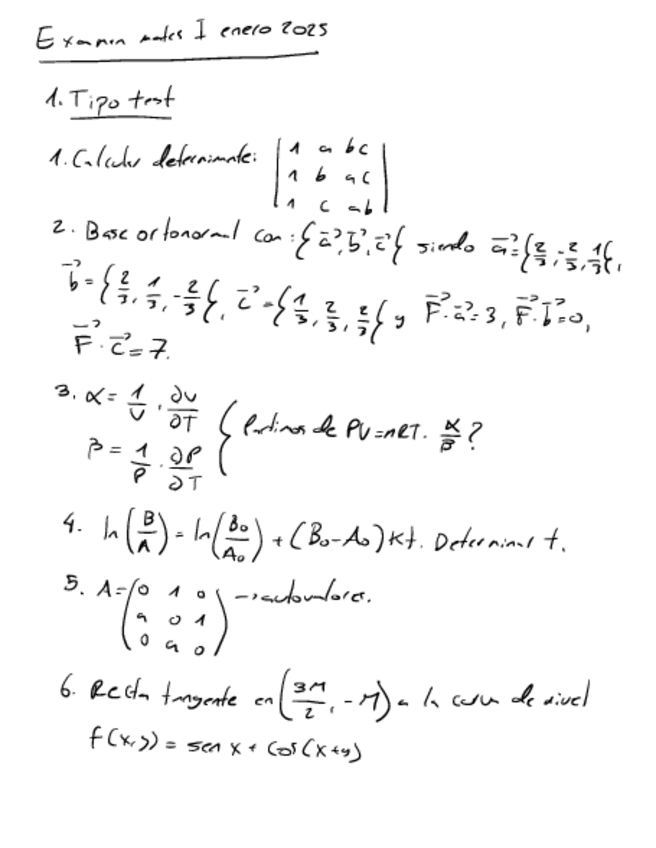 Examen mates I enero 2025
1. Tipo test
1. Calcular determinante: | 1 a bc |
| 1 b ac |
| 1 c ab |
2. Base ortonormal con: {a⃗, b⃗, c⃗} siendo a⃗ = {2/3, -2/3, 1/3},
b⃗ = {2/3, 1/3, -2/3}, c⃗ = {1/3, 2/3, 2/3} y F⃗·a⃗ = 3, F⃗·b⃗ = 0,
F⃗·c⃗ = 7.
3. α = 1/V · ∂V/∂T
β = 1/P · ∂P/∂T } Partimos de PV = nRT. α/β?
4. ln(B/A) = ln(B₀/A₀) + (B₀ - A₀)Kt. Determinar t.
5. A = (0 1 0 → autovalores.
a 0 1
0 a 0)
6. Recta tangente en (3π/2, -π) a la curva de nivel
f(x,y) = sen x + cos(x+y)